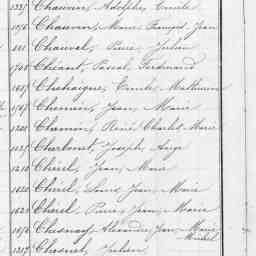 1237 Chauvin, Adolphe, Emile
1076 Chauvin, Marie François Jean
Chauvel, Pierre, Julien
1708 Pascal Ferdinand
Emile Mathurin
1767 Jean Marie
1201 René, Charles Marie
1237 Charbonet Joseph Ange
1210 Chérel, Jean Marie
1620 Chérel, Louis Jean Marie
1622 Chérel, Pierre, Jean, Marie
1676 Chesnay, Alexandre, Jean, Marie
Michel
1217 Chesnel, Julien